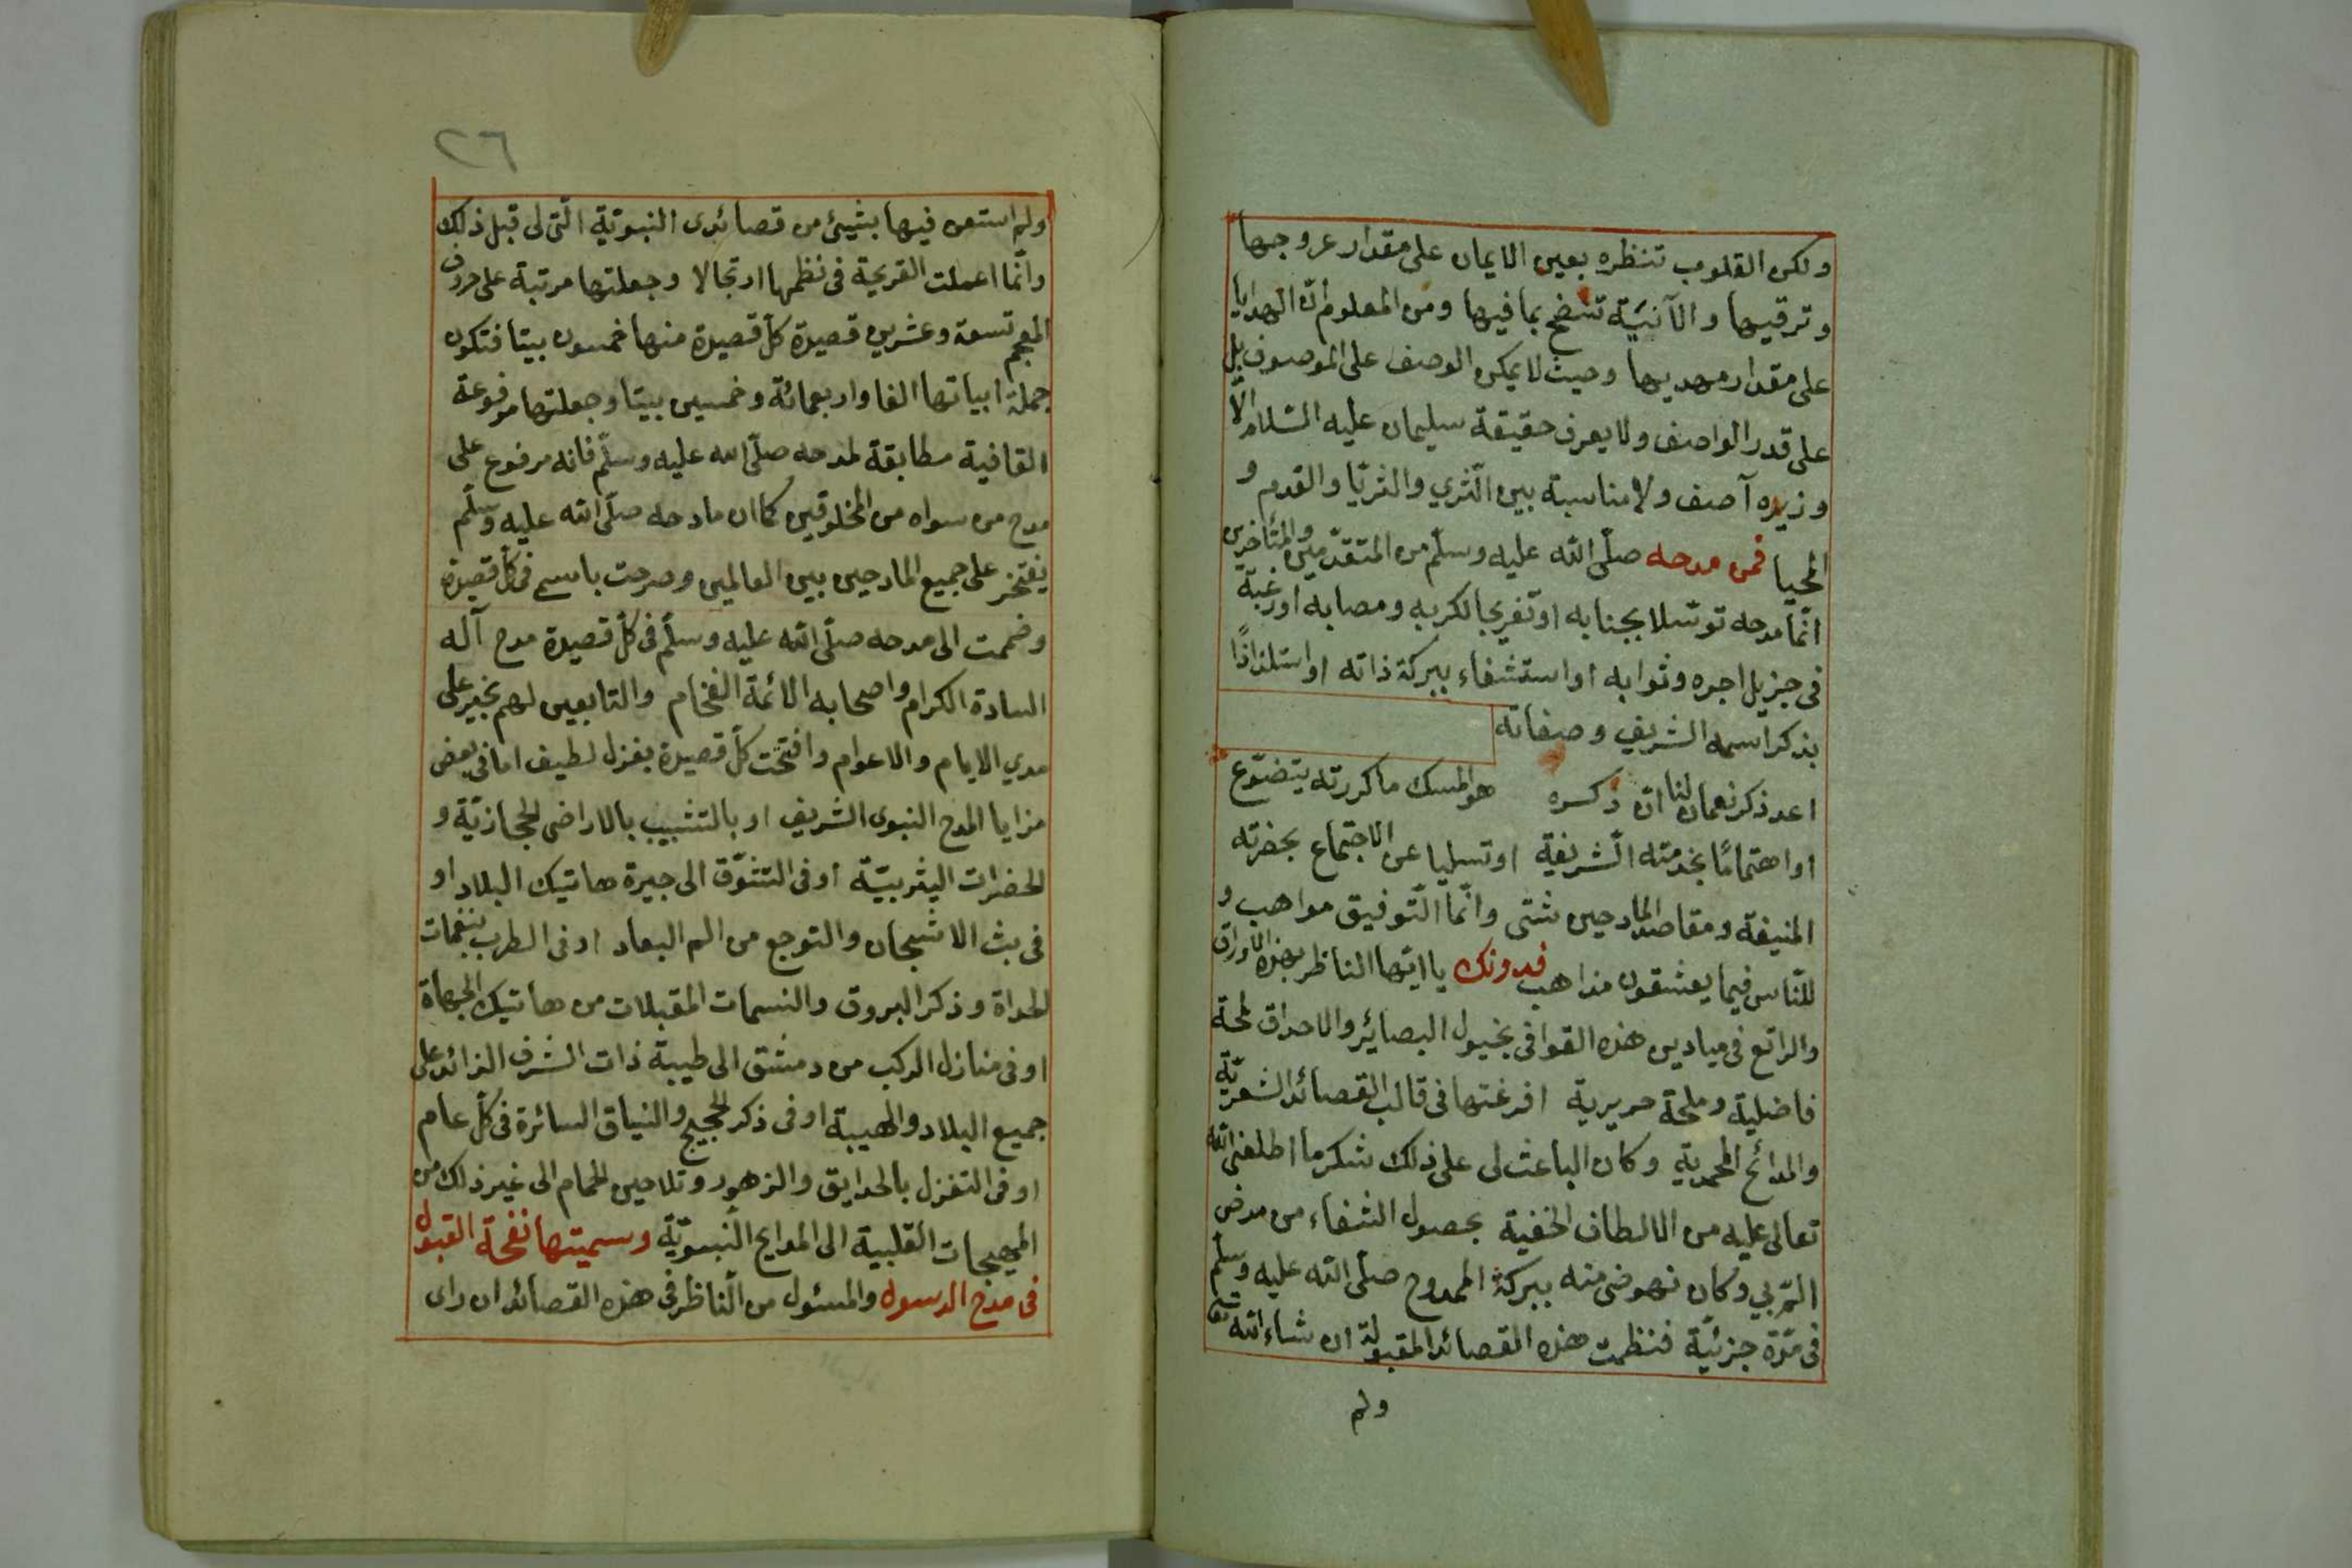 ولكن القلوب تنظره بعين الايمان على مقدار عروجها
وترقيها والآنيّة تنضح بما فيها ومن المعلوم انّ الهدايا
على مقدار مهديها وحيث لا يمكن الوصف على الموصوف بل
على قدر الواصف ولا يعرف حقيقة سليمان عليه السّلام الّا
وزيره آصف ولا مناسبة بين الثّري والثريّا والقدم و
المحيا فمن مدحه صلّى الله عليه وسلّم من المتقدّمين والمتأخرين
انّما مدحه توسّلا بجنابه او تفريجا لكربه ومصابه او رغبة
فى جزيل اجره وثوابه او استشفاء ببركة ذاته او استلذاذًا
بذكر اسمه الشريف وصفاته
اعد ذكر نعمان لنا انّ ذكره هو المسك ما كررته يتضوّع
او اهتمامًا بخدمته الشّريفة او تسليا عن الاجتماع بحضرته
المنيفة ومقاصد المادحين شتى وانّما التّوفيق مواهب و
للنّاس فيما يعشقون مذاهب فدونك يا ايّها الناظر بهذه الاوراق
والراتع فى ميادين هذه القوافى بخيول البصائر والاحداق لمحة
فاضلية وملحة حريرية افرغتها فى قالب القصائد الشعريّة
والمدائح المحمدية وكان الباعث لى على ذلك شكر ما اطلعنى الله
تعالى عليه من الالطاف الخفية بحصول الشفاء من مرض
التّربي وكان نهوضى منه ببركة الممدوح صلّى الله عليه وسلّم
فى مدّة جزئيّة فنظمت هذه القصائد المقبولة ان شاء الله تعا
ولم
٢٦
ولم استعن فيها بشيئ من قصائدى النبويّة الّتى لى قبل ذلك
وانّما اعملت القريحة فى نظمها ارتجالا وجعلتها مرتبة على حروف
المعجم تسعة وعشرين قصيدة كلّ قصيدة منها خمسون بيتا فتكون
جملة ابياتها الفا واربعمائة وخمسين بيتا وجعلتها مرفوعة
القافية مطابقة لمدحه صلّى الله عليه وسلّم فانه مرفوع على
مدح من سواه من المخلوقين كما ان مادحه صلّى الله عليه وسلّم
يفتخر على جميع المادحين بين العالمين وصرحت باسمى فى كلّ قصيدة
وضممت الى مدحه صلّى الله عليه وسلّم فى كلّ قصيدة مدح آله
السادة الكرام واصحابه الائمة الفخام والتابعين لهم بخير على
مدي الايام والاعوام وافتتحت كلّ قصيدة بغزل لطيف اما فى بعض
مزايا المدح النبوى الشريف او بالتشبيب بالاراضى الحجازيّة و
الحضرات اليثربيّة او فى التشوّق الى جيرة هاتيك البلاد او
فى بث الاشجان والتوجع من الم البعاد او فى الطرب بنغمات
الحداة وذكر البروق والنسمات المقبلات من هاتيك الجهاة
او فى منازل الركب من دمشق الى طيبة ذات الشرف الزائد على
جميع البلاد والهيبة او فى ذكر الحجيج والنياق السائرة فى كلّ عام
او فى التغزل بالحدايق والزهور وتلاحين الحمام الى غير ذلك من
المهيجات القلبية الى المدايح النّبويّة وسميتها نفحة القبول
فى مدح الرسول والمسئول من النّاظر فى هذه القصائد ان راى